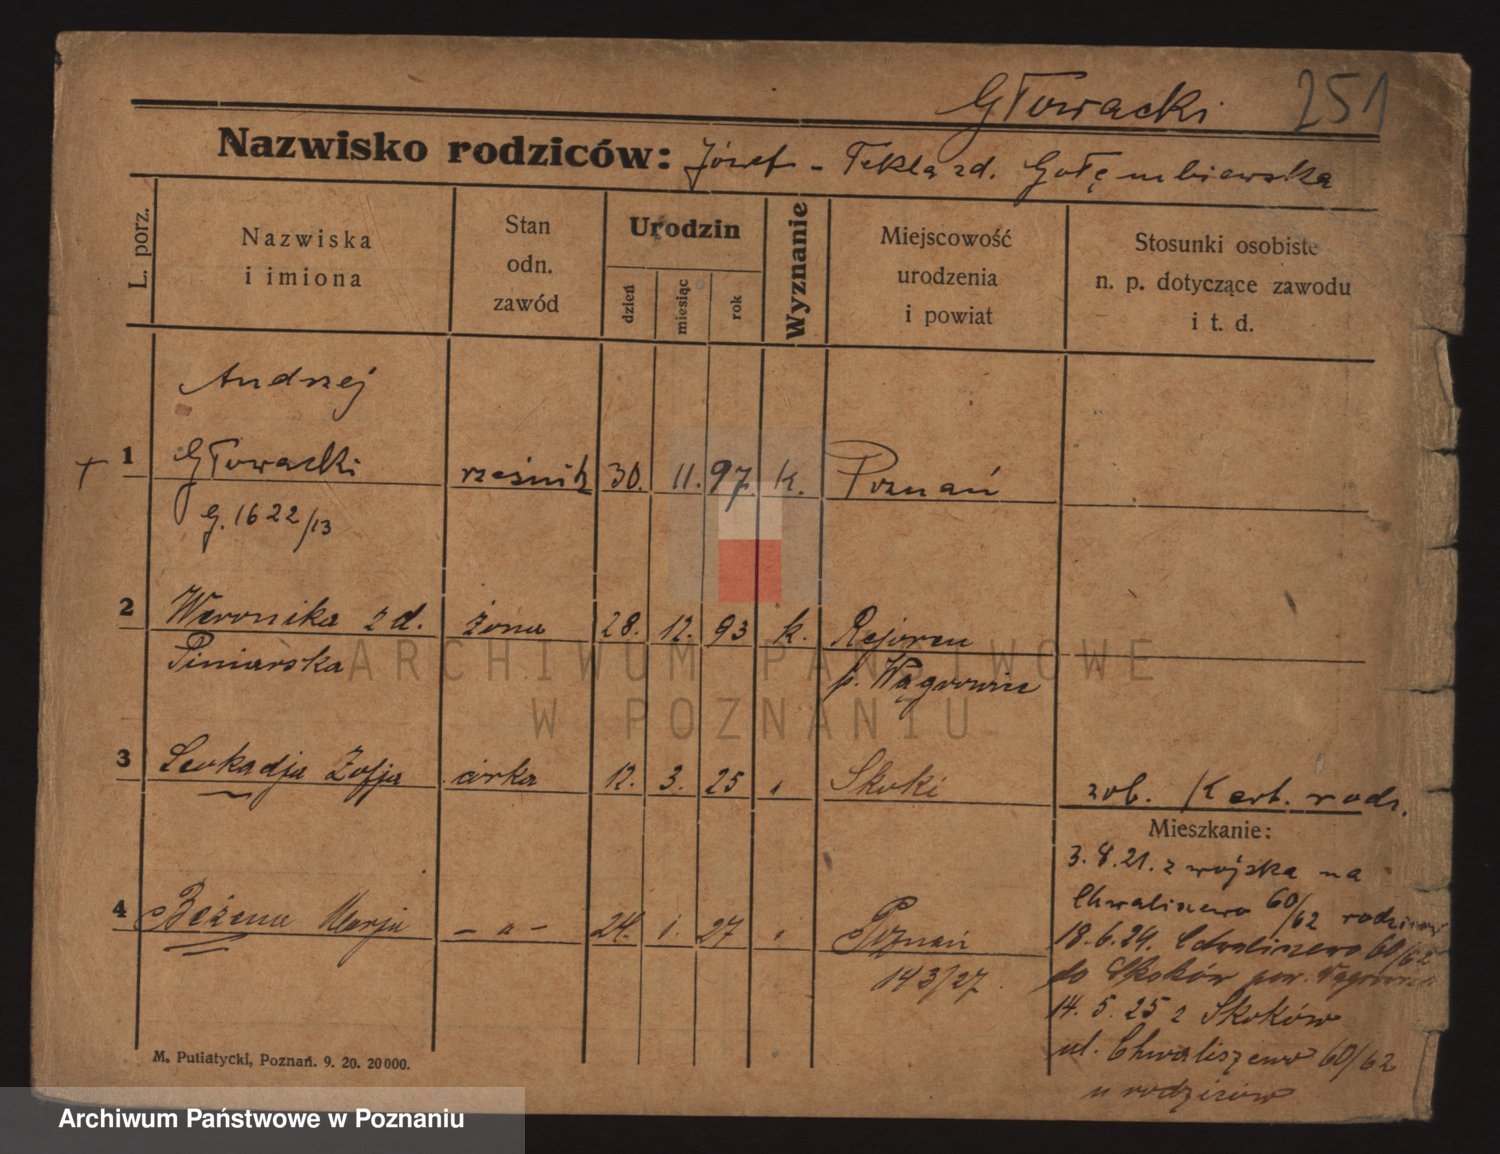 Głowacki 251
Nazwisko rodziców: Józef - Tekla zd. Gołęmbiewska
L. porz.
Nazwiska
i imiona
Stan
odn.
zawód
Urodzin
dzień
miesiąc
rok
Wyznanie
Miejscowość
urodzenia
i powiat
Stosunki osobiste
n. p. dotyczące zawodu
i t. d.
Andrzej
+ 1 Głowacki rzeźnik 30. 11. 97. k. Poznań
G. 1622/13
2 Weronika zd. żona 28. 12. 93 k.
Piniarska p. Wągrowiec
3 Leokadja Zofja córka 12. 3. 25 " Skoki zob. Kart. rodz.
Mieszkanie:
3.8.21. z wojska na
Chwaliszewo 60/62
4 Bożena Marja - " - 24. 1. 27 " Poznań
18.6.24. Chwaliszewo 60/62
143/27.
do Skoków pow. Wągrowiec
14. 5. 25 z Skoków
ul. Chwaliszewo 60/62
u rodziców
M. Putiatycki, Poznań. 9. 20. 20000.
ARCHIWUM PAŃSTWOWE
W POZNANIU
Archiwum Państwowe w Poznaniu